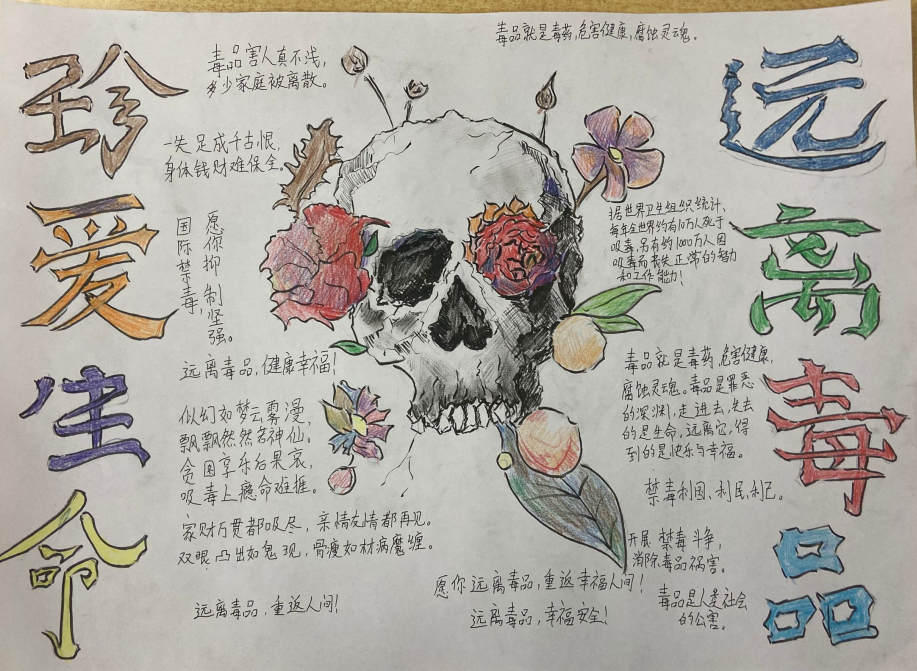 珍爱生命
远离毒品
毒品害人真不浅,
多少家庭被离散。
一失足成千古恨,
身体钱财难保全。
愿你抑制坚强。
国际禁毒,
远离毒品,健康幸福!
似幻如梦云雾漫,
飘飘然然若神仙。
贪图享乐后果哀,
吸毒上瘾命难捱。
家财万贯都吸尽,亲情友情都再见。
双眼凸出如鬼现,骨瘦如材病魔缠。
远离毒品,重返人间!
毒品就是毒药,危害健康,腐蚀灵魂。
据世界卫生组织统计,
每年全世界约有10万人死于
吸毒,另有约1000万人因
吸毒而丧失正常的智力
和工作能力!
毒品就是毒药,危害健康,
腐蚀灵魂。毒品是罪恶
的深渊,走进去,失去
的是生命,远离它,得
到的是快乐与幸福。
禁毒利国、利民、利己。
开展禁毒斗争,
消除毒品祸害。
愿你远离毒品,重返幸福人间!
远离毒品,幸福安全!
毒品是人类社会
的公害。